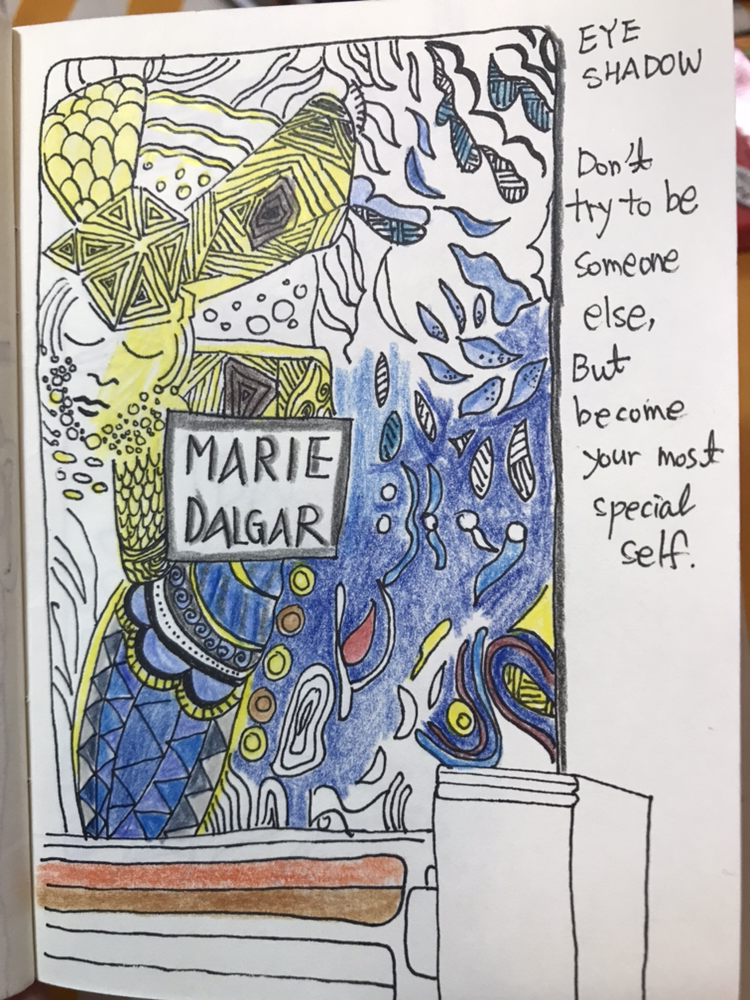 EYE
SHADOW
Don't
try to be
someone
else,
But
become
your most
special
self.
MARIE
DALGAR